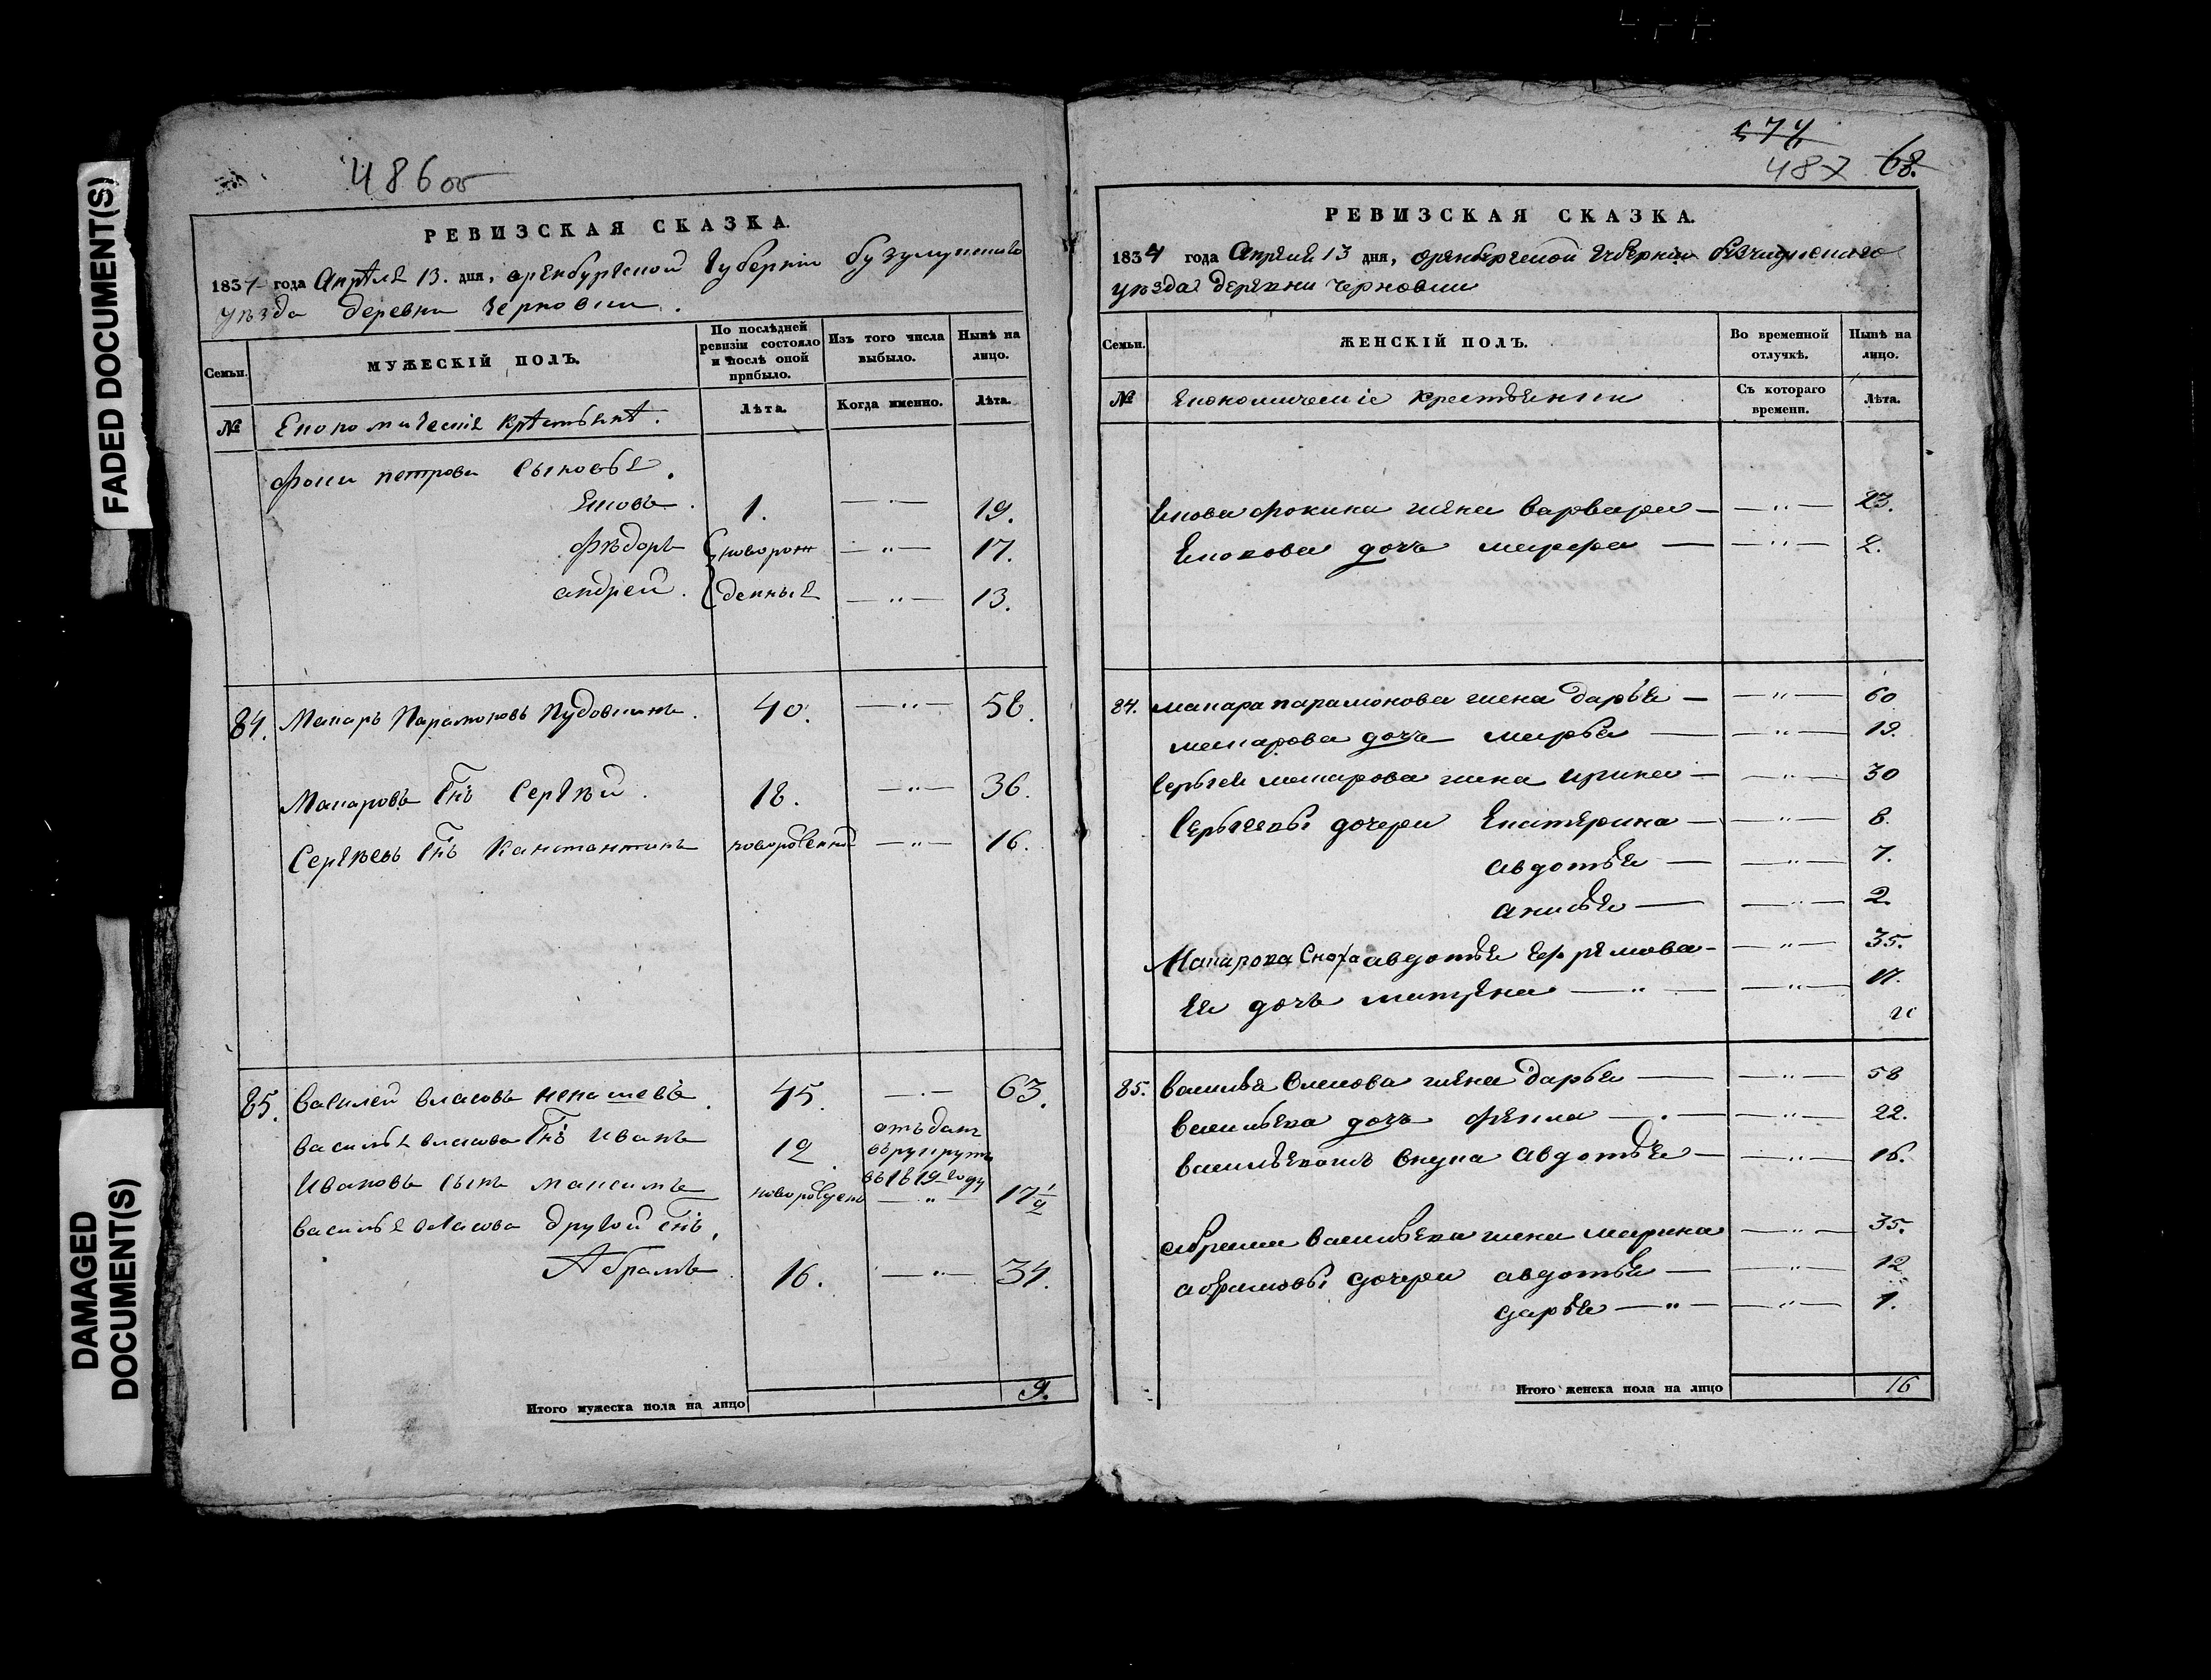 FADED DOCUMENT(S)
DAMAGED
DOCUMENT(S)
486об
РЕВИЗСКАЯ СКАЗКА.
1834 года Апреля 13. дня, оренбургской губернии бузулуцкого
уезда деревни Черновки.
Семьи.
МУЖЕСКІЙ ПОЛЪ.
По послѣдней ревизіи состояло и послѣ оной прибыло.
Изъ того числа выбыло.
Нынѣ на лицо.
№ Економическія крестьяне.
Лѣта. Когда именно. Лѣта.
фоки петрова сыновья
Яковъ 1. — 19.
Фѣдоръ новорож — " — 17.
андрей денныя — " — 13.
84. Макаръ Парамоновъ Пудовкинъ. 40. — " — 58.
Макаровъ Снъ Сергѣй. 18. — " — 36.
Сергѣевъ Снъ Канстантинъ новорожденной — " — 16.
85. Василей власовъ ненашевъ. 45. — 63.
Василья власова Снъ Иванъ 12 отъданъ въ рекруты въ 1819 году
Ивановъ Сынъ Максимъ новорожденъ — " — 17½
Василья власова другой снъ,
Абрамъ 16. — " — 34.
Итого мужеска пола на лицо 9.
574
487 68.
РЕВИЗСКАЯ СКАЗКА.
1834 года Апреля 13 дня, оренбургской губернии бузулуцкого
уѣзда деревни Черновки
Семьи.
ЖЕНСКІЙ ПОЛЪ.
Во временной отлучкѣ.
Нынѣ на лицо.
№ економическіе крестьянки
Съ котораго времени.
Лѣта.
Якова фокина жена варвара — — " — 23.
Якова дочь марфа — — " — 2.
84. макара парамонова жена дарья — — " — 60
макарова дочь марья — — " — 19.
Сергея макарова жена ирина — — " — 30
Сергеевы дочери Екатерина — — " — 8.
авдотья — — " — 7.
анисья — — " — 2.
Макарова Сноха авдотья ефремова — — " — 35.
Ея дочь матрена — " — — " — 17.
85. василья власова жена дарья — — " — 58
васильева дочь фекла — — " — 22.
васильева внука авдотья — — " — 16.
абрама васильева жена марина — " — 35.
абрамовы дочери авдотья — — " — 12
дарья — " — — " — 1.
Итого женска пола на лицо 16